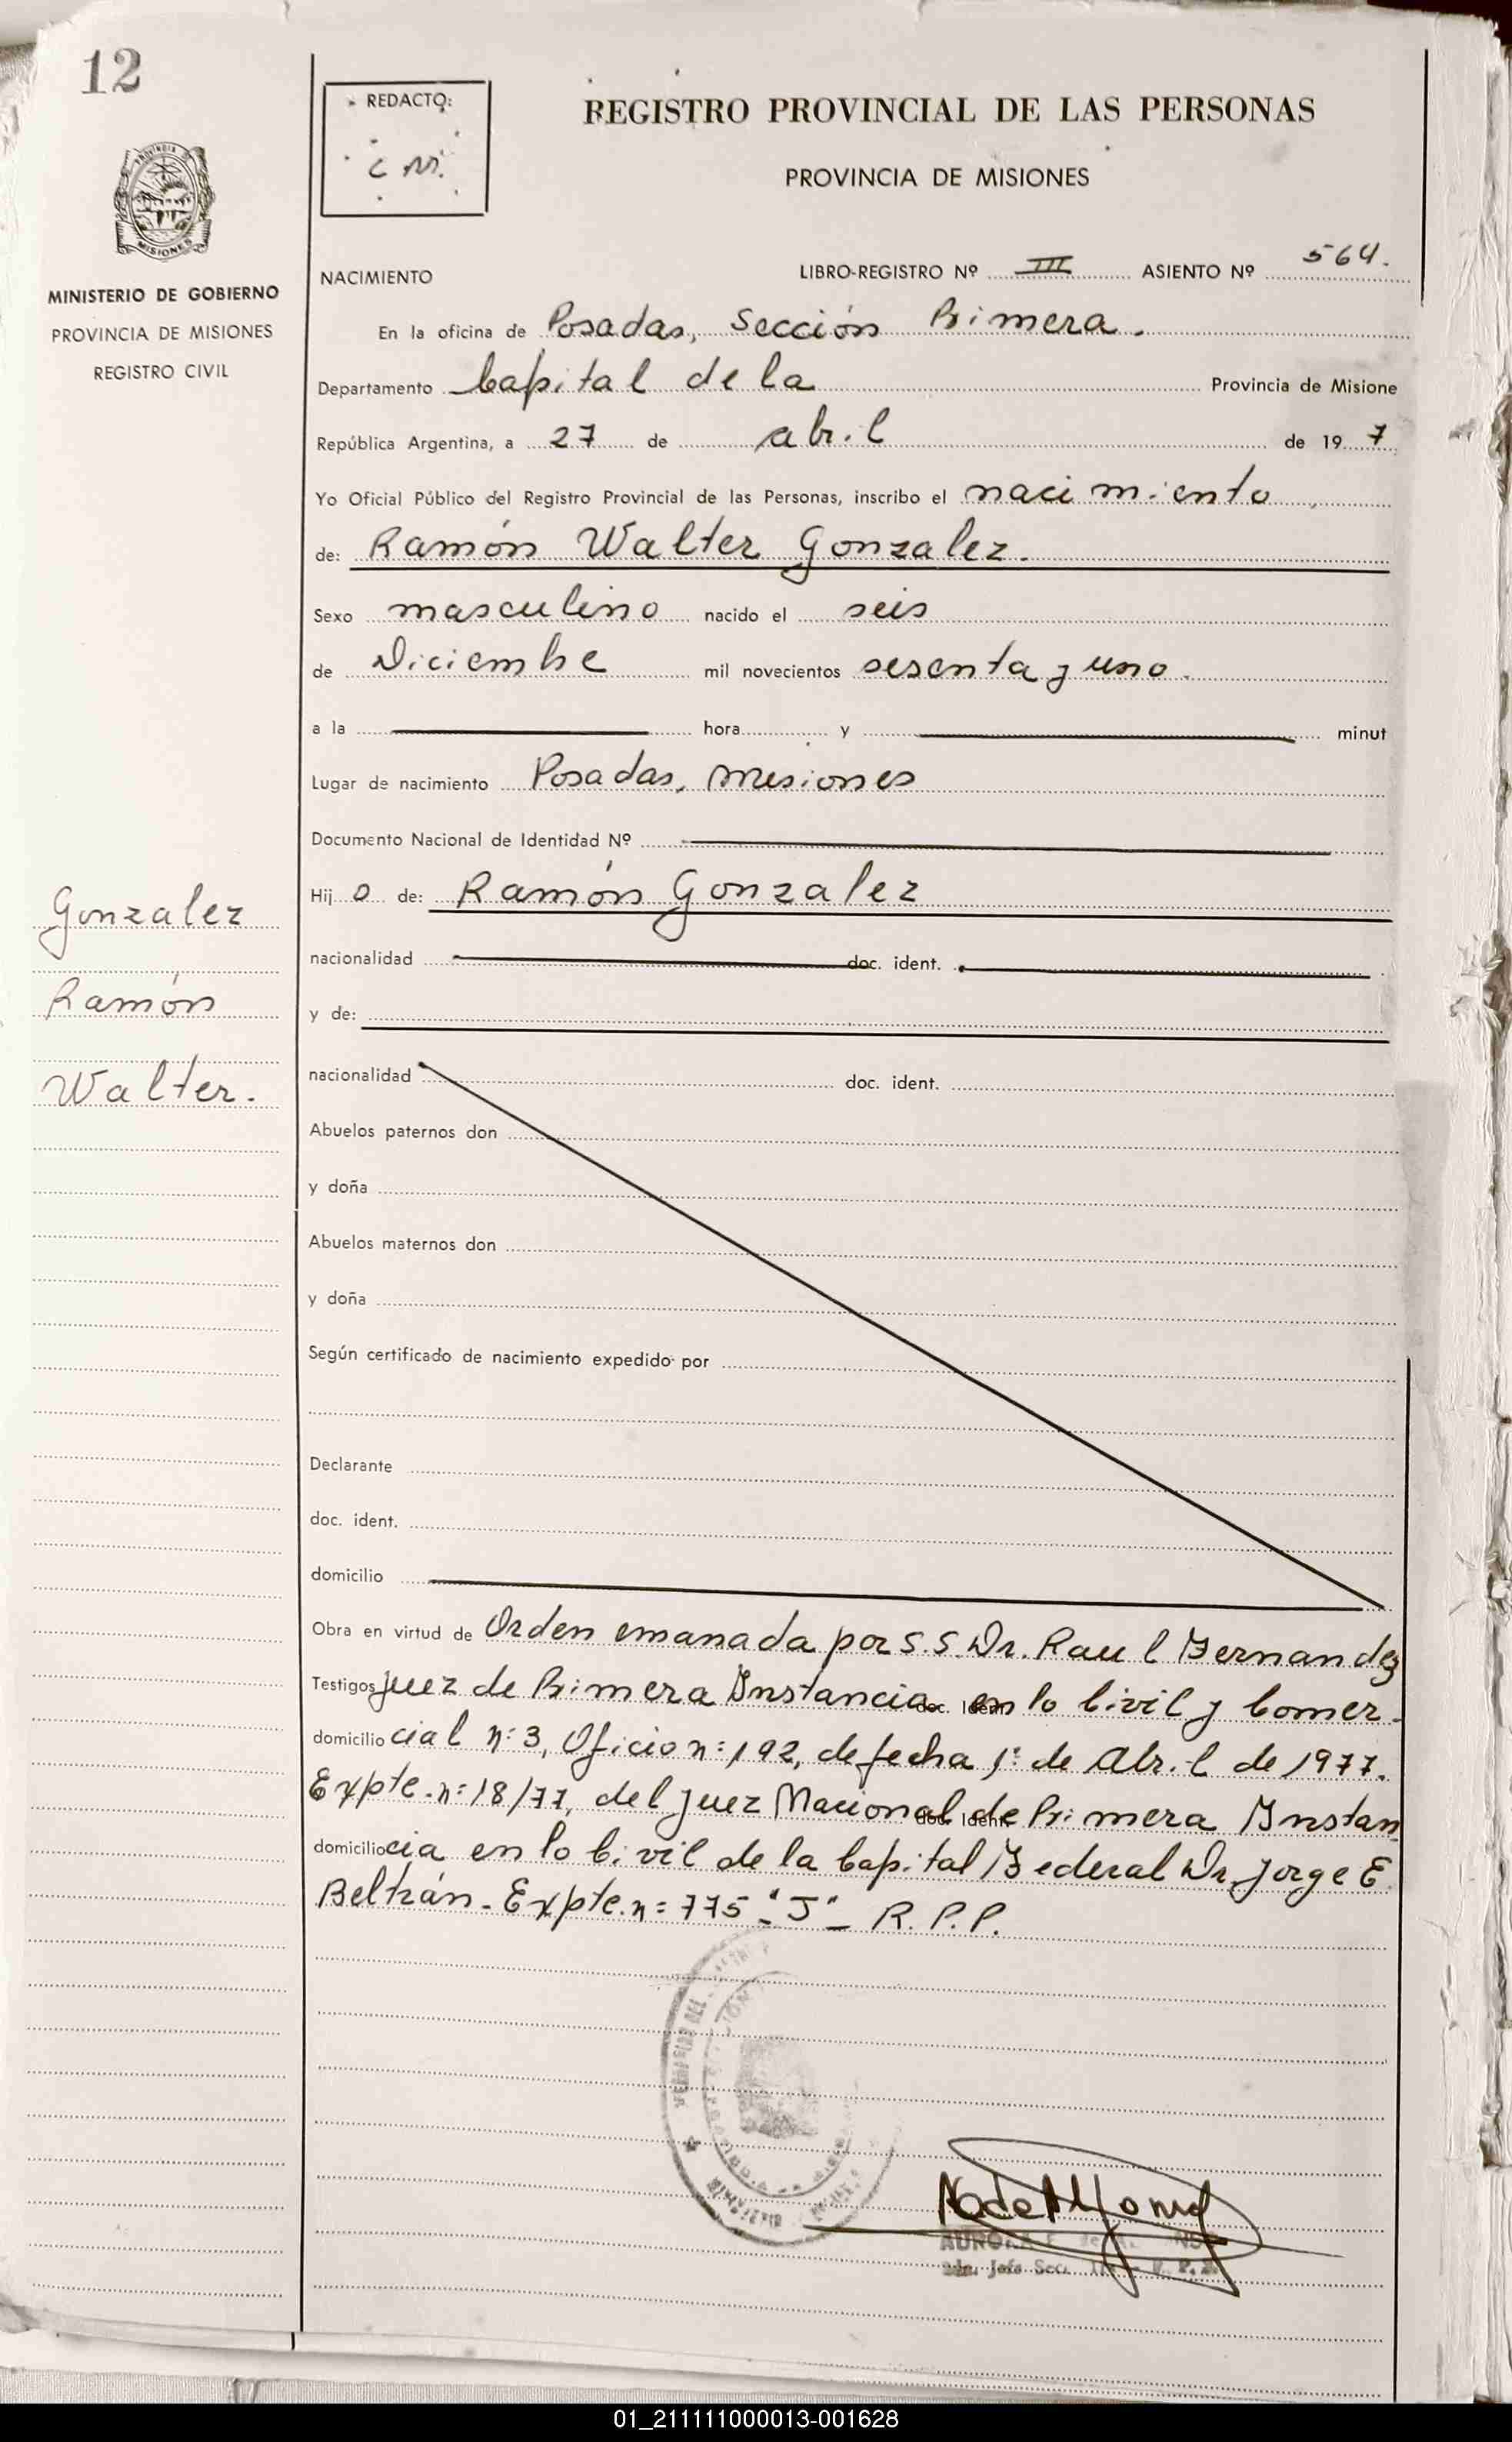 12
REDACTO:
C M.
REGISTRO PROVINCIAL DE LAS PERSONAS
PROVINCIA DE MISIONES
MISIONES
MINISTERIO DE GOBIERNO
PROVINCIA DE MISIONES
REGISTRO CIVIL
NACIMIENTO LIBRO-REGISTRO Nº III ASIENTO Nº 564.
En la oficina de Posadas, Sección Primera.
Departamento Capital de la Provincia de Misione
República Argentina, a 27 de abril de 19 7
Yo Oficial Público del Registro Provincial de las Personas, inscribo el nacimiento
de: Ramón Walter Gonzalez.
Sexo masculino nacido el seis
de Diciembre mil novecientos sesenta y uno.
a la hora y minut
Lugar de nacimiento Posadas, Misiones
Documento Nacional de Identidad Nº
Hij o de: Ramón Gonzalez
nacionalidad doc. ident.
y de:
nacionalidad doc. ident.
Abuelos paternos don
y doña
Abuelos maternos don
y doña
Según certificado de nacimiento expedido por
Declarante
doc. ident.
domicilio
Obra en virtud de Orden emanada por S.S. Dr. Raul Fernandez
Testigos Juez de Primera Instancia doc. Ident. en lo Civil y Comer-
domicilio cial n: 3, Oficio n: 192, de fecha 1: de Abril de 1977.
Expte. n: 18/77, del Juez Nacional doc. Ident. de Primera Instan
domicilio cia en lo Civil de la Capital Federal Dr. Jorge E.
Beltrán - Expte. n= 775 - "J" - R.P.P.
Gonzalez
Ramón
Walter.
01_211111000013-001628